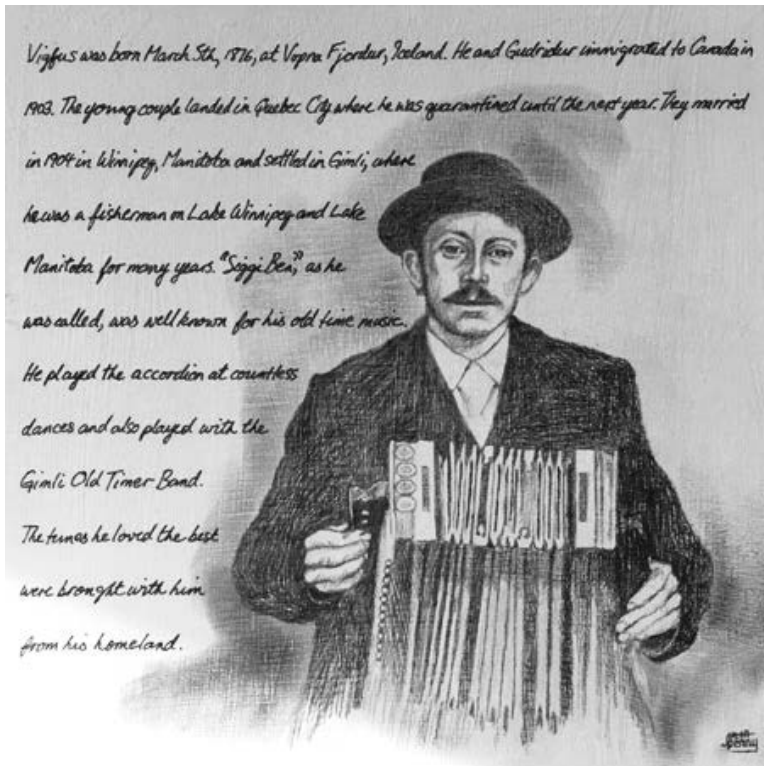 Vigfus was born March 5th, 1876, at Vopna Fjordur, Iceland. He and Gudridur immigrated to Canada in
1903. The young couple landed in Quebec City where he was quarantined until the next year. They married
in 1904 in Winnipeg, Manitoba and settled in Gimli, where
he was a fisherman on Lake Winnipeg and Lake
Manitoba for many years. "Siggi Ben," as he
was called, was well known for his old time music.
He played the accordion at countless
dances and also played with the
Gimli Old Timer Band.
The tunes he loved the best
were brought with him
from his homeland.